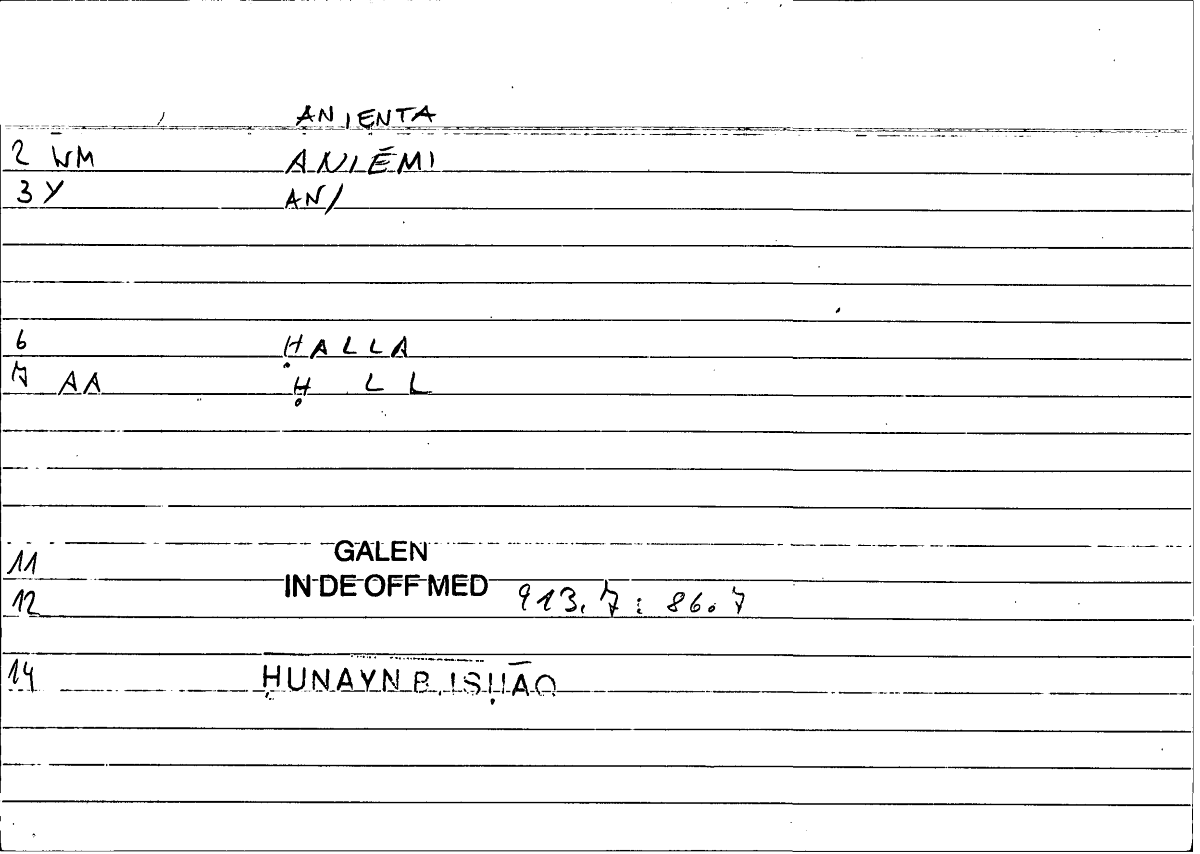 ANIENTA
2 W̄M ANIĒMI
3 Y AN/
6 ḤALLA
7 AA Ḥ L L
11 GALEN
12 IN DE OFF MED 913.7: 86.7
14 ḤUNAYN B. ISḤĀQ